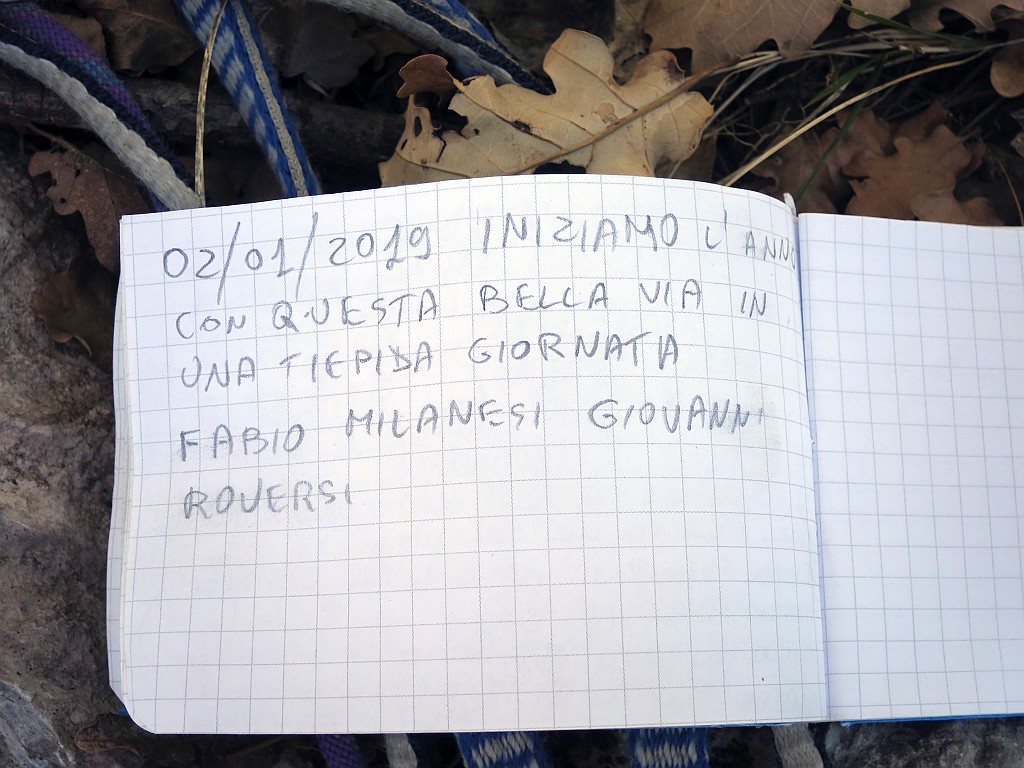 02/01/2019 INIZIAMO L'ANNO
CON QUESTA BELLA VIA IN
UNA TIEPIDA GIORNATA
FABIO MILANESI GIOVANNI
ROVERSI